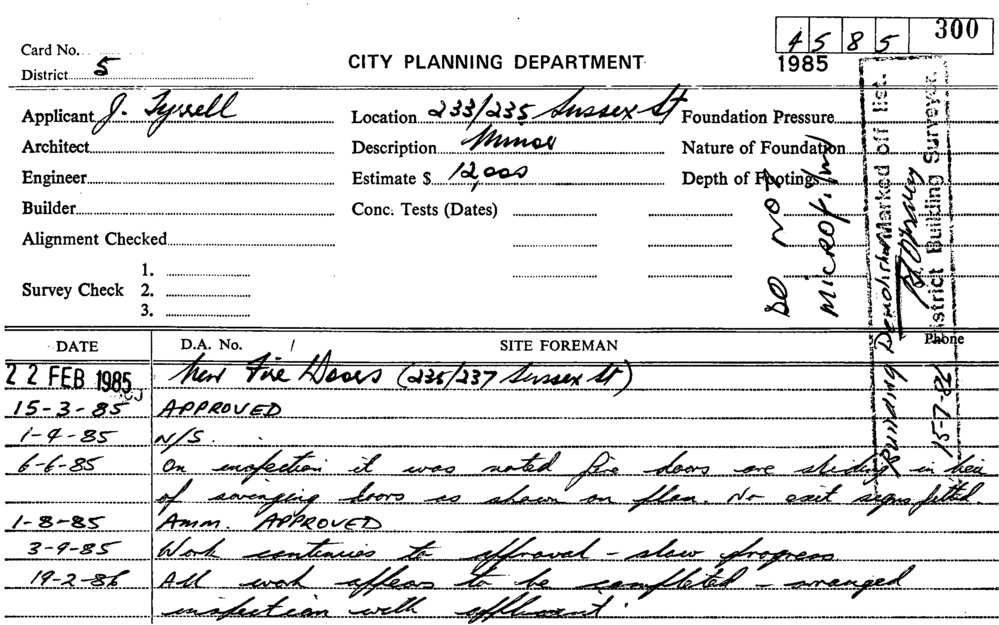 4 5 8 5 300
1985
Card No.
District 5
CITY PLANNING DEPARTMENT
Applicant J. Tyrrell
Location 233/235 Sussex St
Foundation Pressure
Architect
Description Minor
Nature of Foundation
Engineer
Estimate $ 12,000
Depth of Footings
Builder
Conc. Tests (Dates)
Alignment Checked
Survey Check
1.
2.
3.
DO NOT
MICROFILM
Building Demolished Marked off list.
District Building Surveyor.
15-7-86
DATE D.A. No. / SITE FOREMAN Phone
22 FEB 1985 New Fire Doors (235/237 Sussex St)
15-3-85 APPROVED
1-4-85 N/S.
6-6-85 On inspection it was noted fire doors are sliding in lieu
of swinging doors as shown on plan. No exit signs fitted.
1-8-85 Amm. APPROVED
3-9-85 Work continues to approval - slow progress
19-2-86 All work appears to be completed - arranged
inspection with applicant.